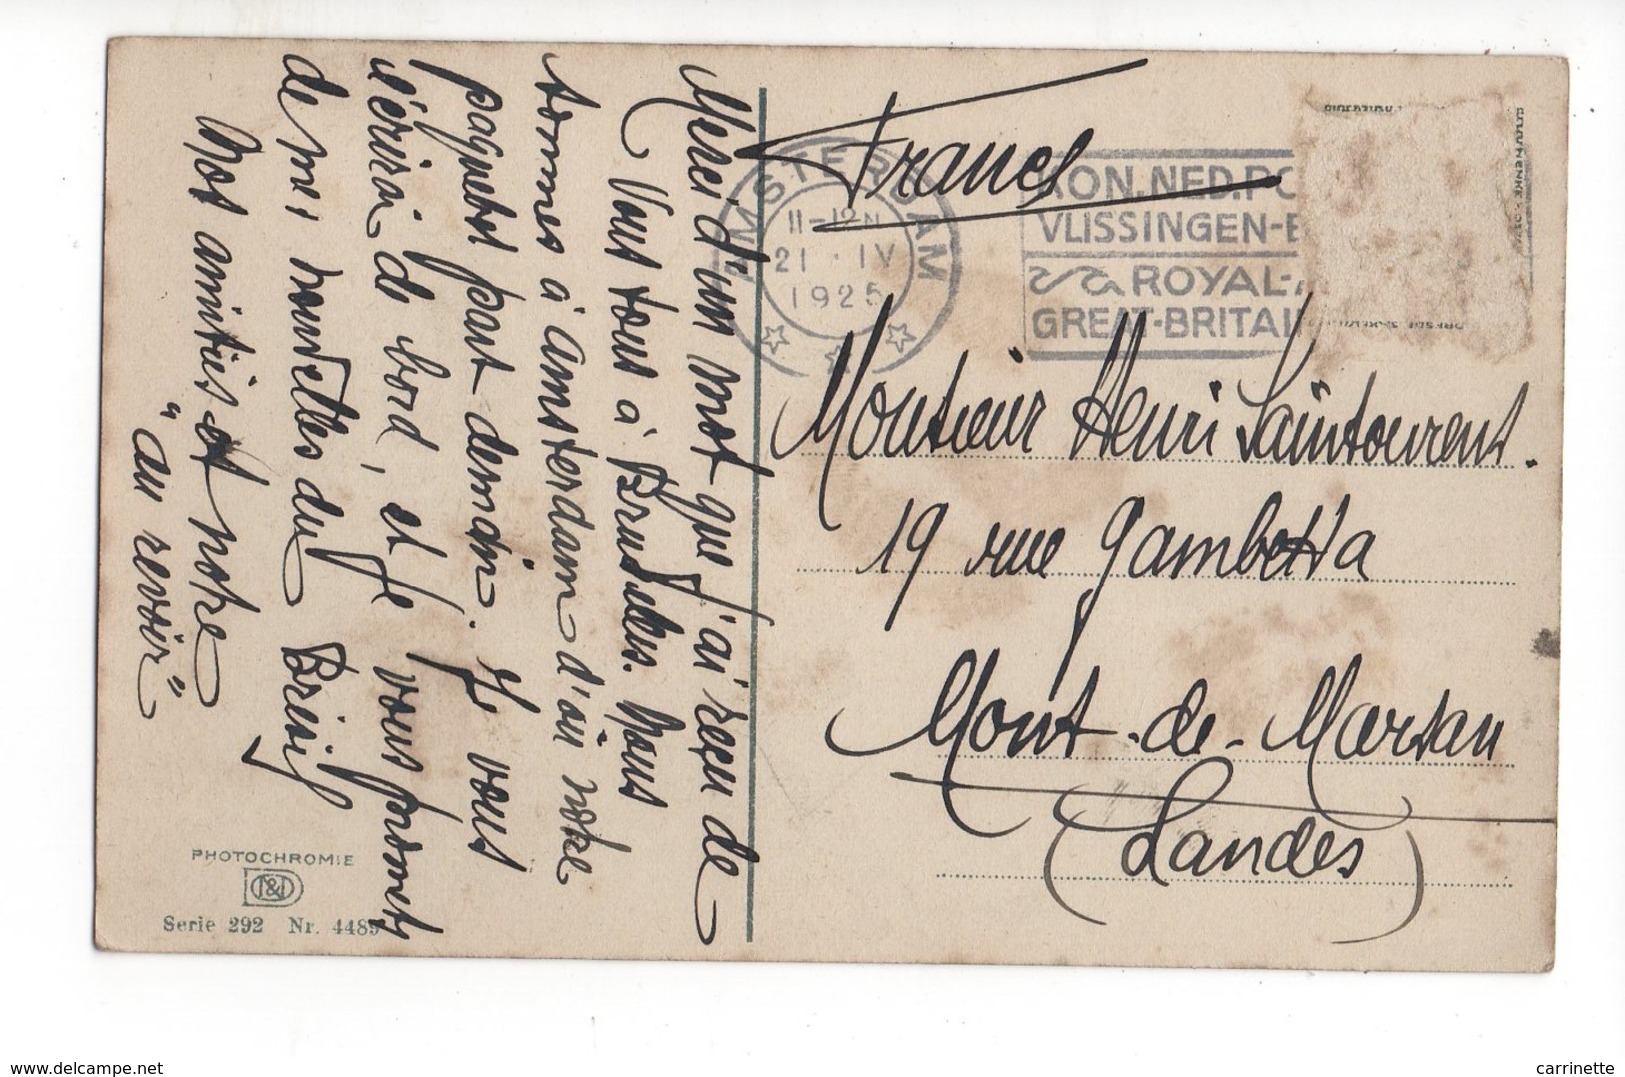 Merci d'un mot que j'ai reçu de
Vous tous à Bruxelles. Nous
sommes à Amsterdam d'où notre
paquebot part demain. Je vous
écrirai de bord, et je vous promets
de nos nouvelles du Brésil
Nos amitiés et notre
"au revoir"
PHOTOCHROMIE
Serie 292 Nr. 4489
France
AMSTERDAM
11-12 N
21 IV
1925
KON. NED. PO
VLISSINGEN-E
ROYAL-
GREAT-BRITAI
Monsieur Henri Saintourent.
19 rue Gambetta
Mont-de-Marsan
(Landes)
www.delcampe.net
carrinette